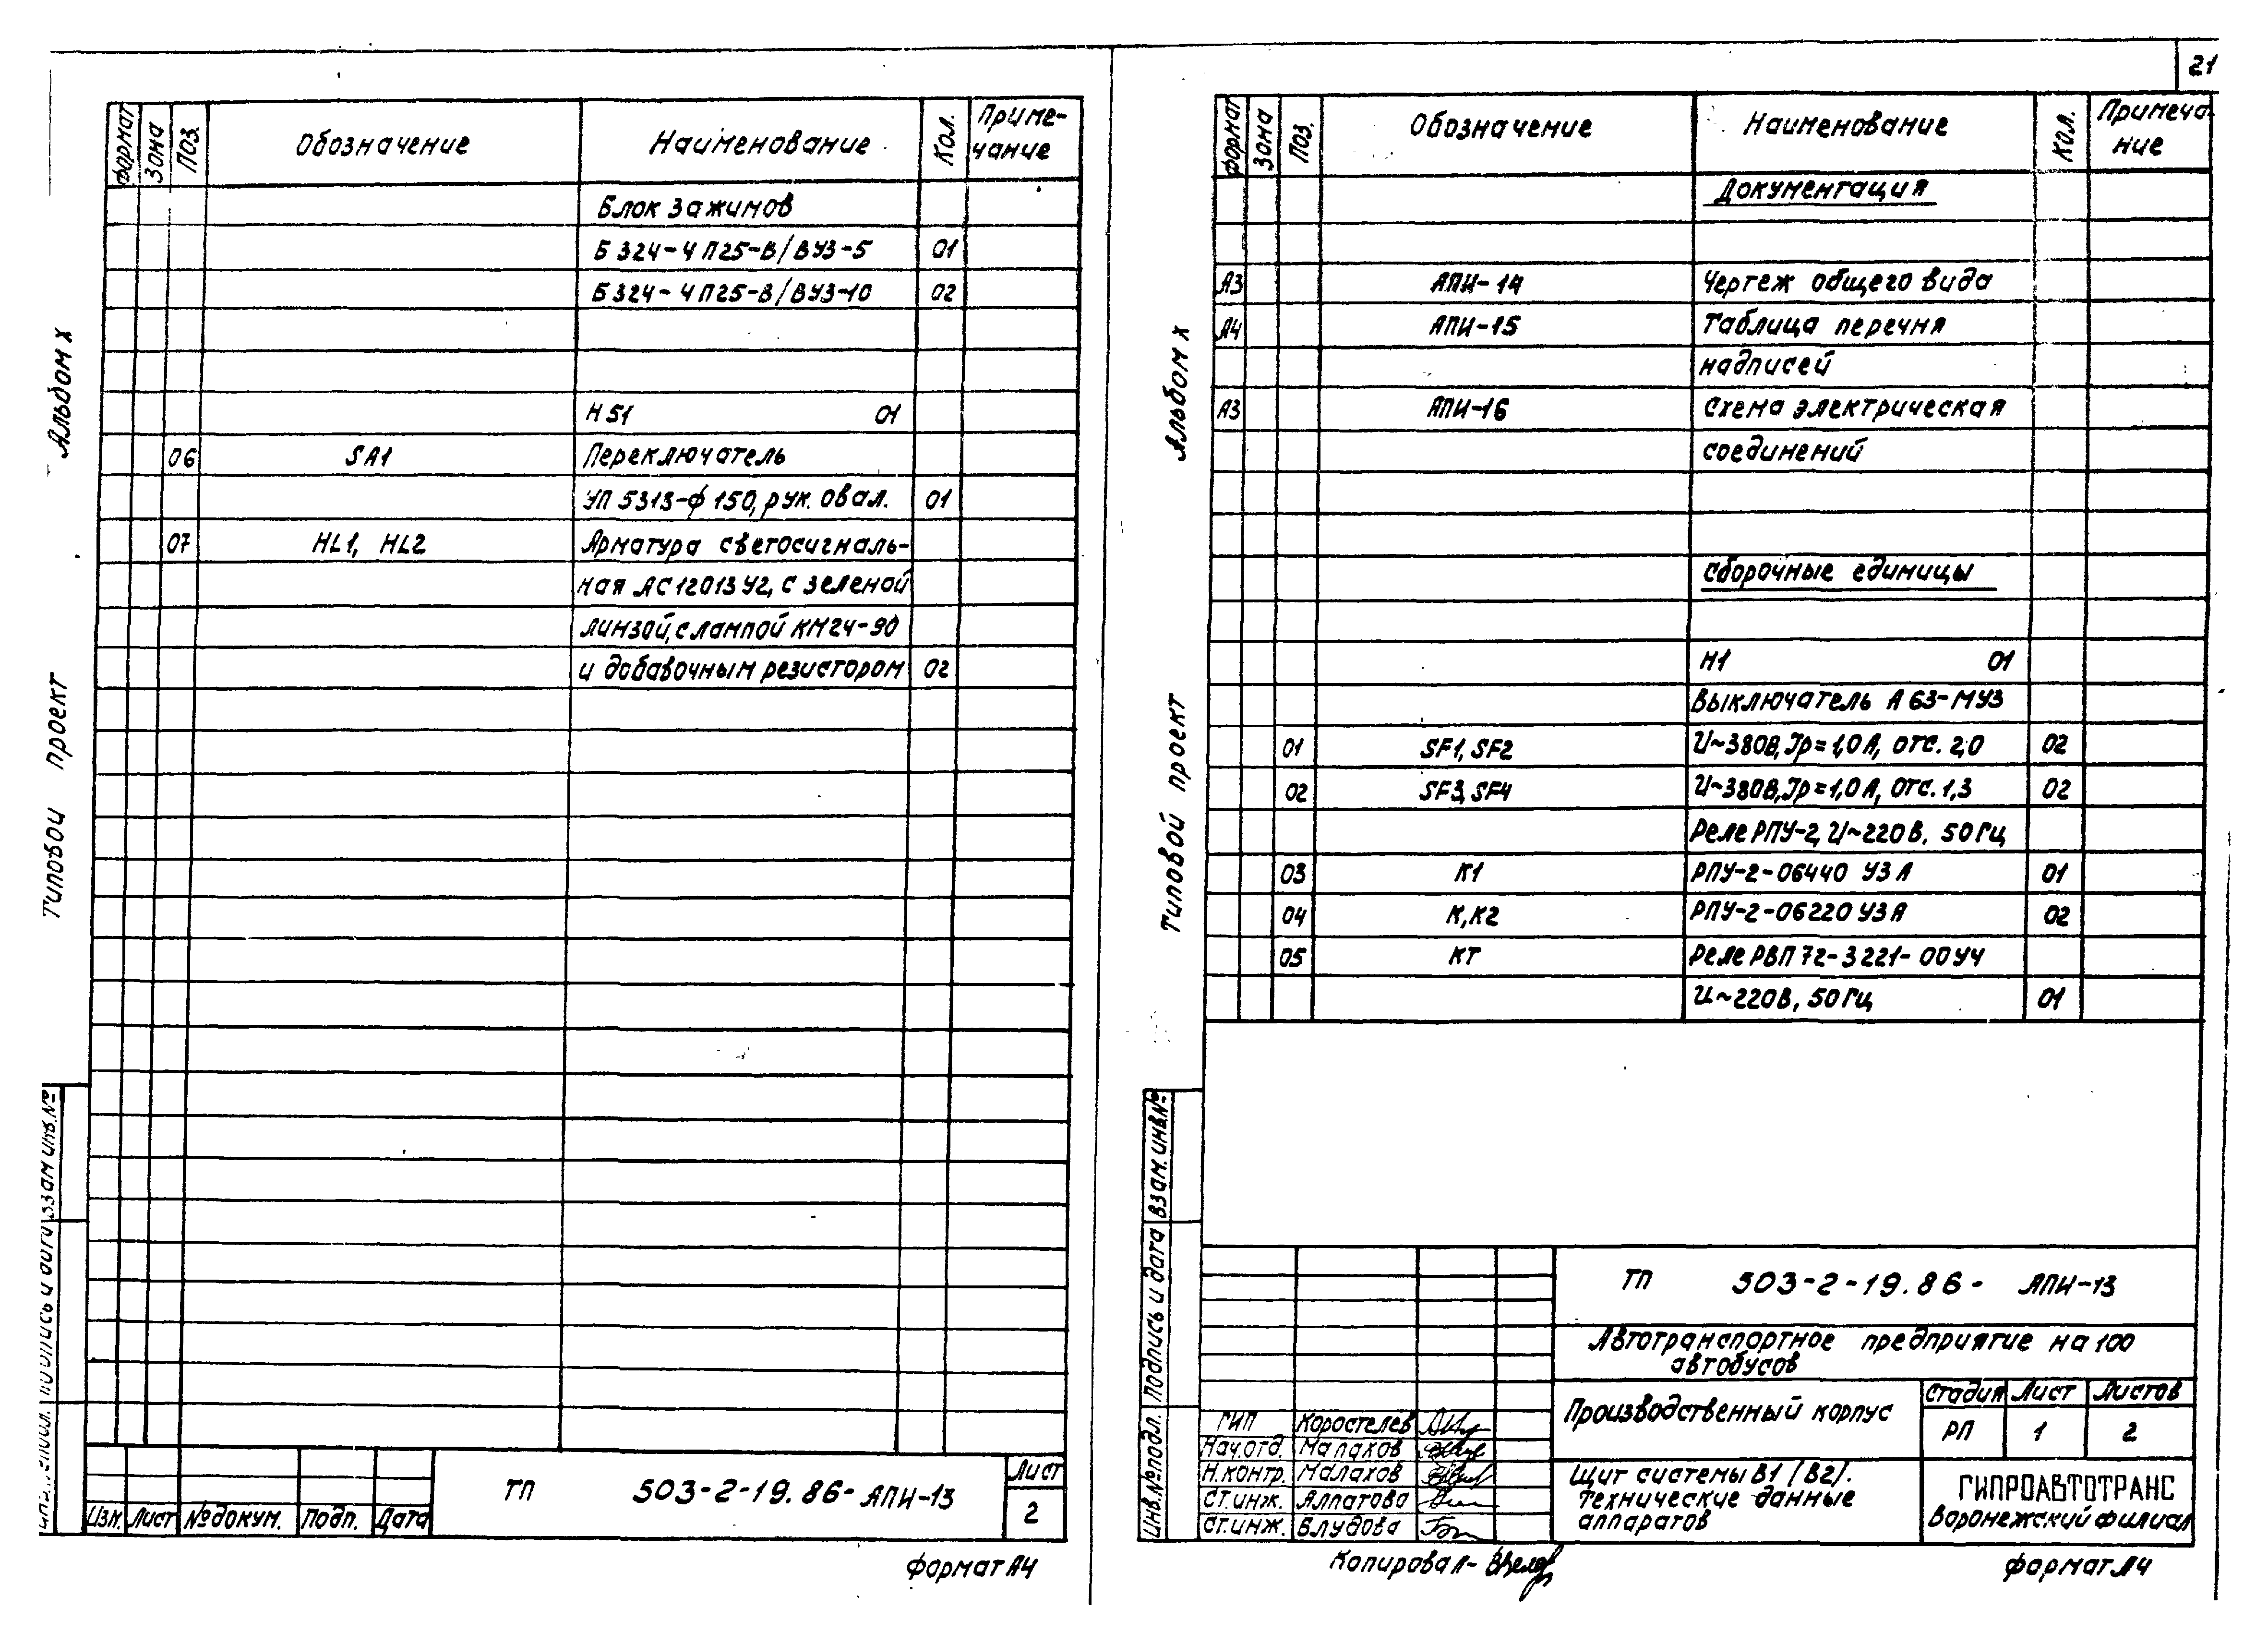 21
Формат
Зона
Поз.
Обозначение
Наименование
Кол.
Приме-
чание
Блок зажимов
Б324-4П25-В/ВУ3-5 01
Б324-4П25-В/ВУ3-10 02
Н51 01
06 SA1 Переключатель
УП5313-ф150, рук. овал. 01
07 HL1, HL2 Арматура светосигналь-
ная АС12013У2, с зеленой
линзой, с лампой КМ24-90
и добавочным резистором 02
Альбом X
Типовой проект
Взам инв.№
Подпись и дата
Изм. Лист №докум. Подп. Дата
ТП 503-2-19.86-АПИ-13
Лист
2
Формат А4
Формат
Зона
Поз.
Обозначение
Наименование
Кол.
Примеча-
ние
Документация
А3 АПИ-14 Чертеж общего вида
А4 АПИ-15 Таблица перечня
надписей
А3 АПИ-16 Схема электрическая
соединений
Сборочные единицы
Н1 01
Выключатель А63-МУ3
01 SF1, SF2 U~380В, Jр=1,0А, отс. 2,0 02
02 SF3, SF4 U~380В, Jр=1,0А, отс. 1,3 02
Реле РПУ-2, U~220В, 50Гц
03 К1 РПУ-2-06440 У3А 01
04 К, К2 РПУ-2-06220У3А 02
05 КТ Реле РВП72-3221-00У4
U~220В, 50Гц 01
Альбом X
Типовой проект
Взам. инв.№
Подпись и дата
Инв.№подл.
ТП 503-2-19.86- АПИ-13
Автотранспортное предприятие на 100
автобусов
Производственный корпус
Стадия Лист Листов
РП 1 2
ГИП Коростелев
Нач.отд. Малахов
Н.контр. Малахов
Ст.инж. Алпатова
Ст.инж. Блудова
Щит системы В1 (В2).
Технические данные
аппаратов
ГИПРОАВТОТРАНС
Воронежский филиал
Копировал-
Формат А4